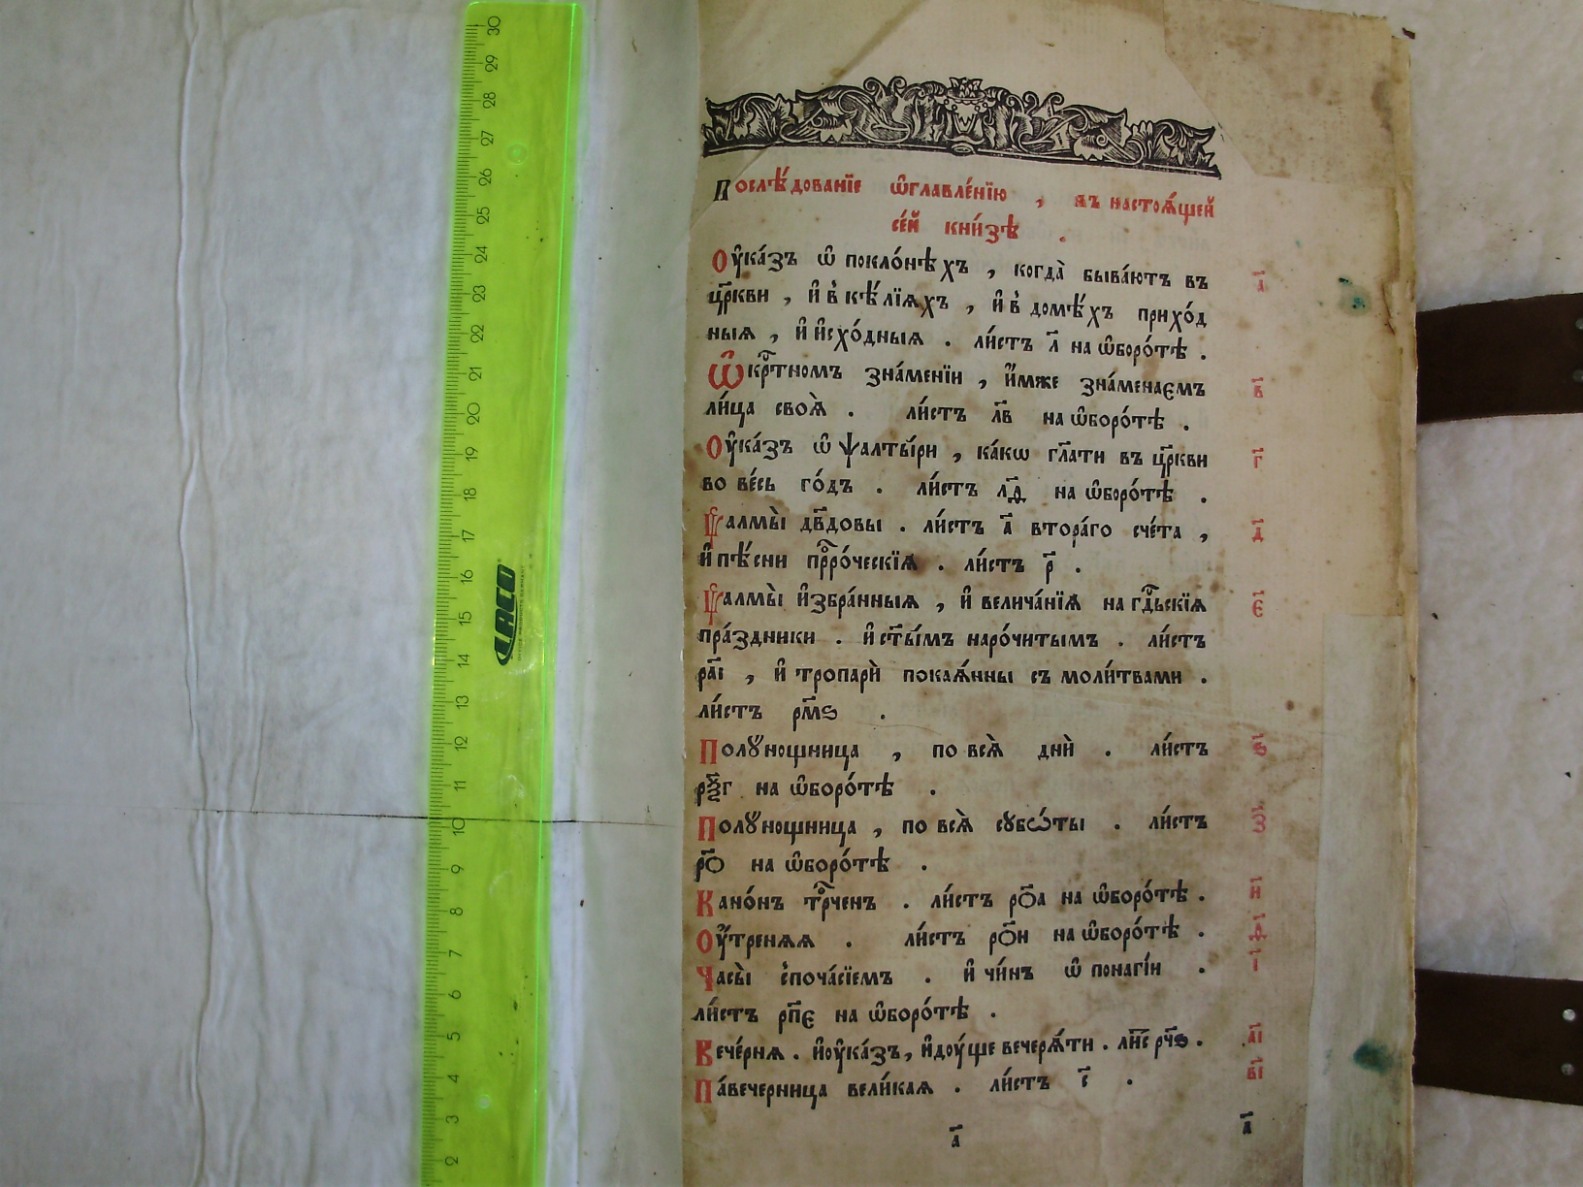 Послѣ́дованїе ѡ҆главле́нїю , ꙗ҆́въ настоѧ́щей
се́й кни́зѣ .
Оу҆ка́зъ ѡ҆ покло́нѣхъ , когда̀ быва́ютъ въ а҃
цр҃кви , и҆ в̾ кѣ́лїѧхъ , и҆ в̾ домѣ́хъ прихо́д
ныѧ , и҆ и҆схо́дныѧ . ли́стъ л҃ на ѡ҆боро́тѣ .
Ѡ҆ крⷭ҇тномъ зна́менїи , и҆́мже зна́менаємъ в҃
ли́ца своѧ̀ . ли́стъ л҃в на ѡ҆боро́тѣ .
Оу҆ка́зъ ѡ҆ ѱалты́ри , ка́кѡ гл҃ати въ цр҃кви г҃
во ве́сь го́дъ . ли́стъ л҃д на ѡ҆боро́тѣ .
Ѱалмы̀ дв҃довы . ли́стъ а҃ втора́го сче́та , д҃
и҆ пѣ́сни прⷪ҇ро́ческїѧ . ли́стъ р҃ .
Ѱалмы̀ и҆збра́нныѧ , и҆ велича́нїѧ на гдⷭ҇ьскїѧ є҃
пра́здники . и҆ ст҃ы́мъ наро́читымъ . ли́стъ
ра҃і , и҆ тропарѝ покаѧ́нны съ моли́твами .
ли́стъ рм҃ѕ .
Полꙋнощница , по всѧ̀ днѝ . ли́стъ ѕ҃
рѯ҃г на ѡ҆боро́тѣ .
Полꙋнощница , по всѧ̀ сꙋбѡ́ты . ли́стъ з҃
ро҃ на ѡ҆боро́тѣ .
Кано́нъ трⷪ҇ченъ . ли́стъ ро҃а на ѡ҆боро́тѣ . и҃
Оу҆́тренѧѧ . ли́стъ ро҃и на ѡ҆боро́тѣ . ѳ҃
Часы̀ с̾поча́сїемъ . и҆ чи́нъ ѡ҆ понагі́и . і҃
ли́стъ рп҃є на ѡ҆боро́тѣ .
Вече́рнѧ . и҆оу҆ка́зъ, и҆доу́ще вечерѧ́ти . лиⷭ҇ рч҃ѕ . а҃і
Па́вечерница вели́каѧ . ли́стъ с҃ . в҃і
а҃ а҃
LACO
30
29
28
27
26
25
24
23
22
21
20
19
18
17
16
15
14
13
12
11
10
9
8
7
6
5
4
3
2